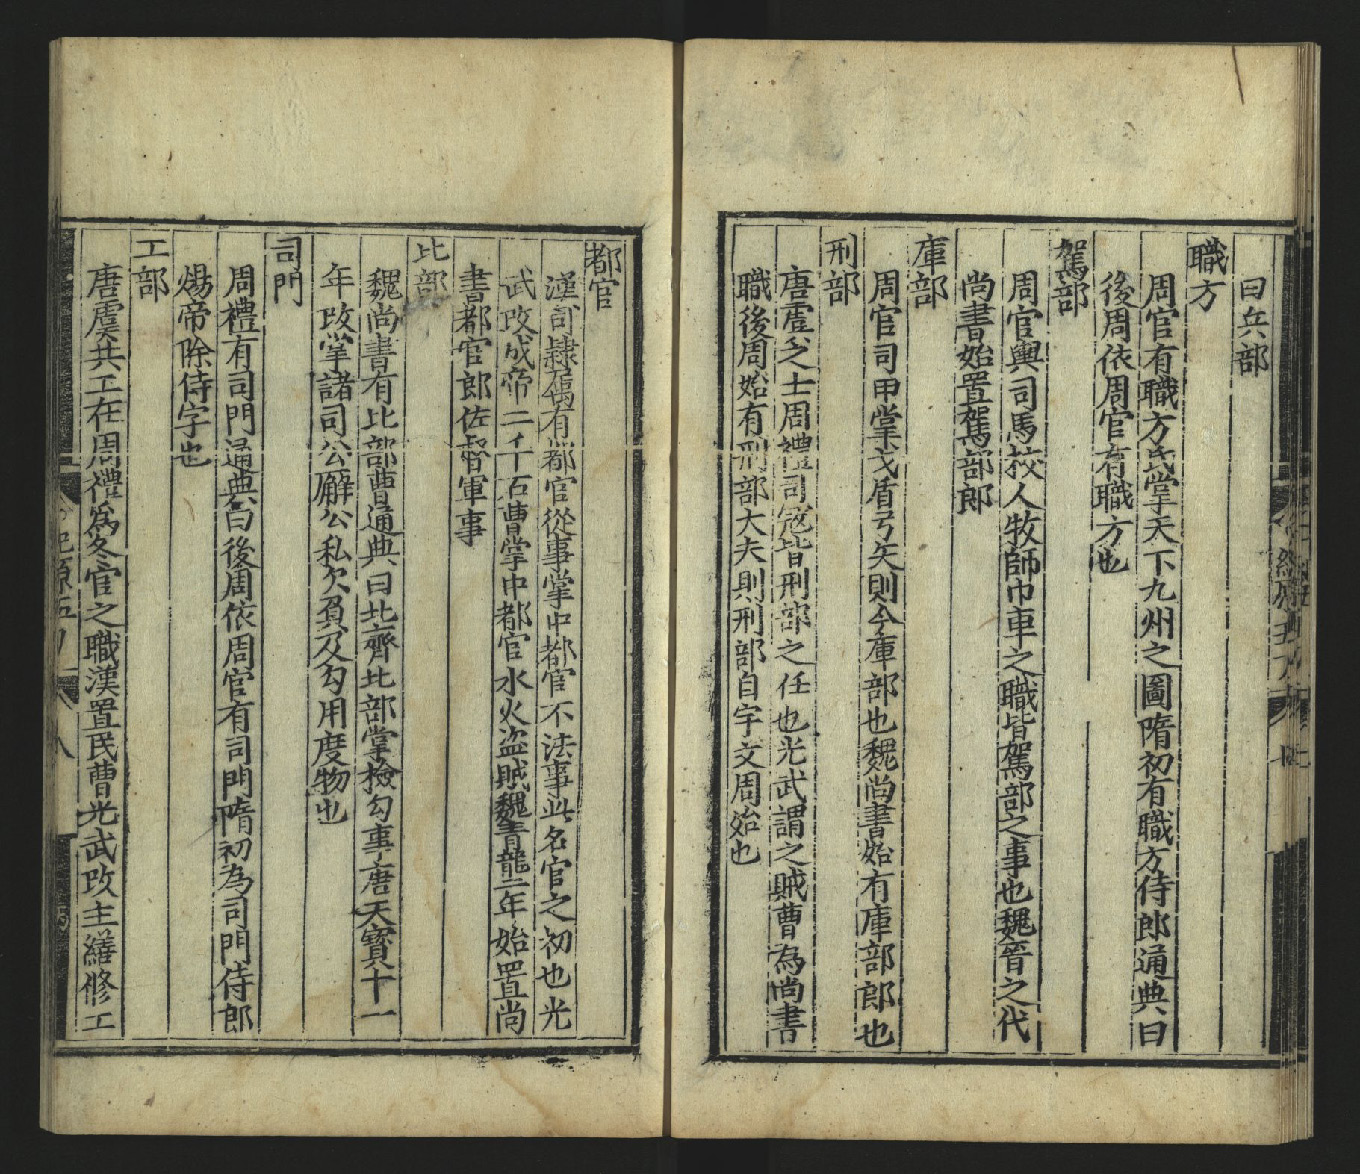 曰兵部
職方
周官有職方氏掌天下九州之圖隋初有職方侍郎通典曰
後周依周官有職方也
駕部
周官輿司馬挍人牧師巾車之職皆駕部之事也魏晉之代
尚書始置駕部郎
庫部
周官司甲掌戈盾弓矢則今庫部也魏尚書始有庫部郎也
刑部
唐虞之士周禮司寇皆刑部之任也光武謂之賊曹為尚書
職後周始有刑部大夫則刑部自宇文周始也
都官
漢司隷舊有都官從事掌中都官不法事此名官之初也光
武改成帝二千石曹掌中都官水火盗賊魏青龍二年始置尚
書都官郎佐督軍事
比部
魏尚書有比部曹通典曰北齊比部掌檢勾事唐天寳十一
年改掌諸司公廨公私欠負及勾用度物也
司門
周禮有司門通典曰後周依周官有司門隋初為司門侍郎
煬帝除侍字也
工部
唐虞共工在周禮為冬官之職漢置民曹光武改主繕修工
紀原五
八